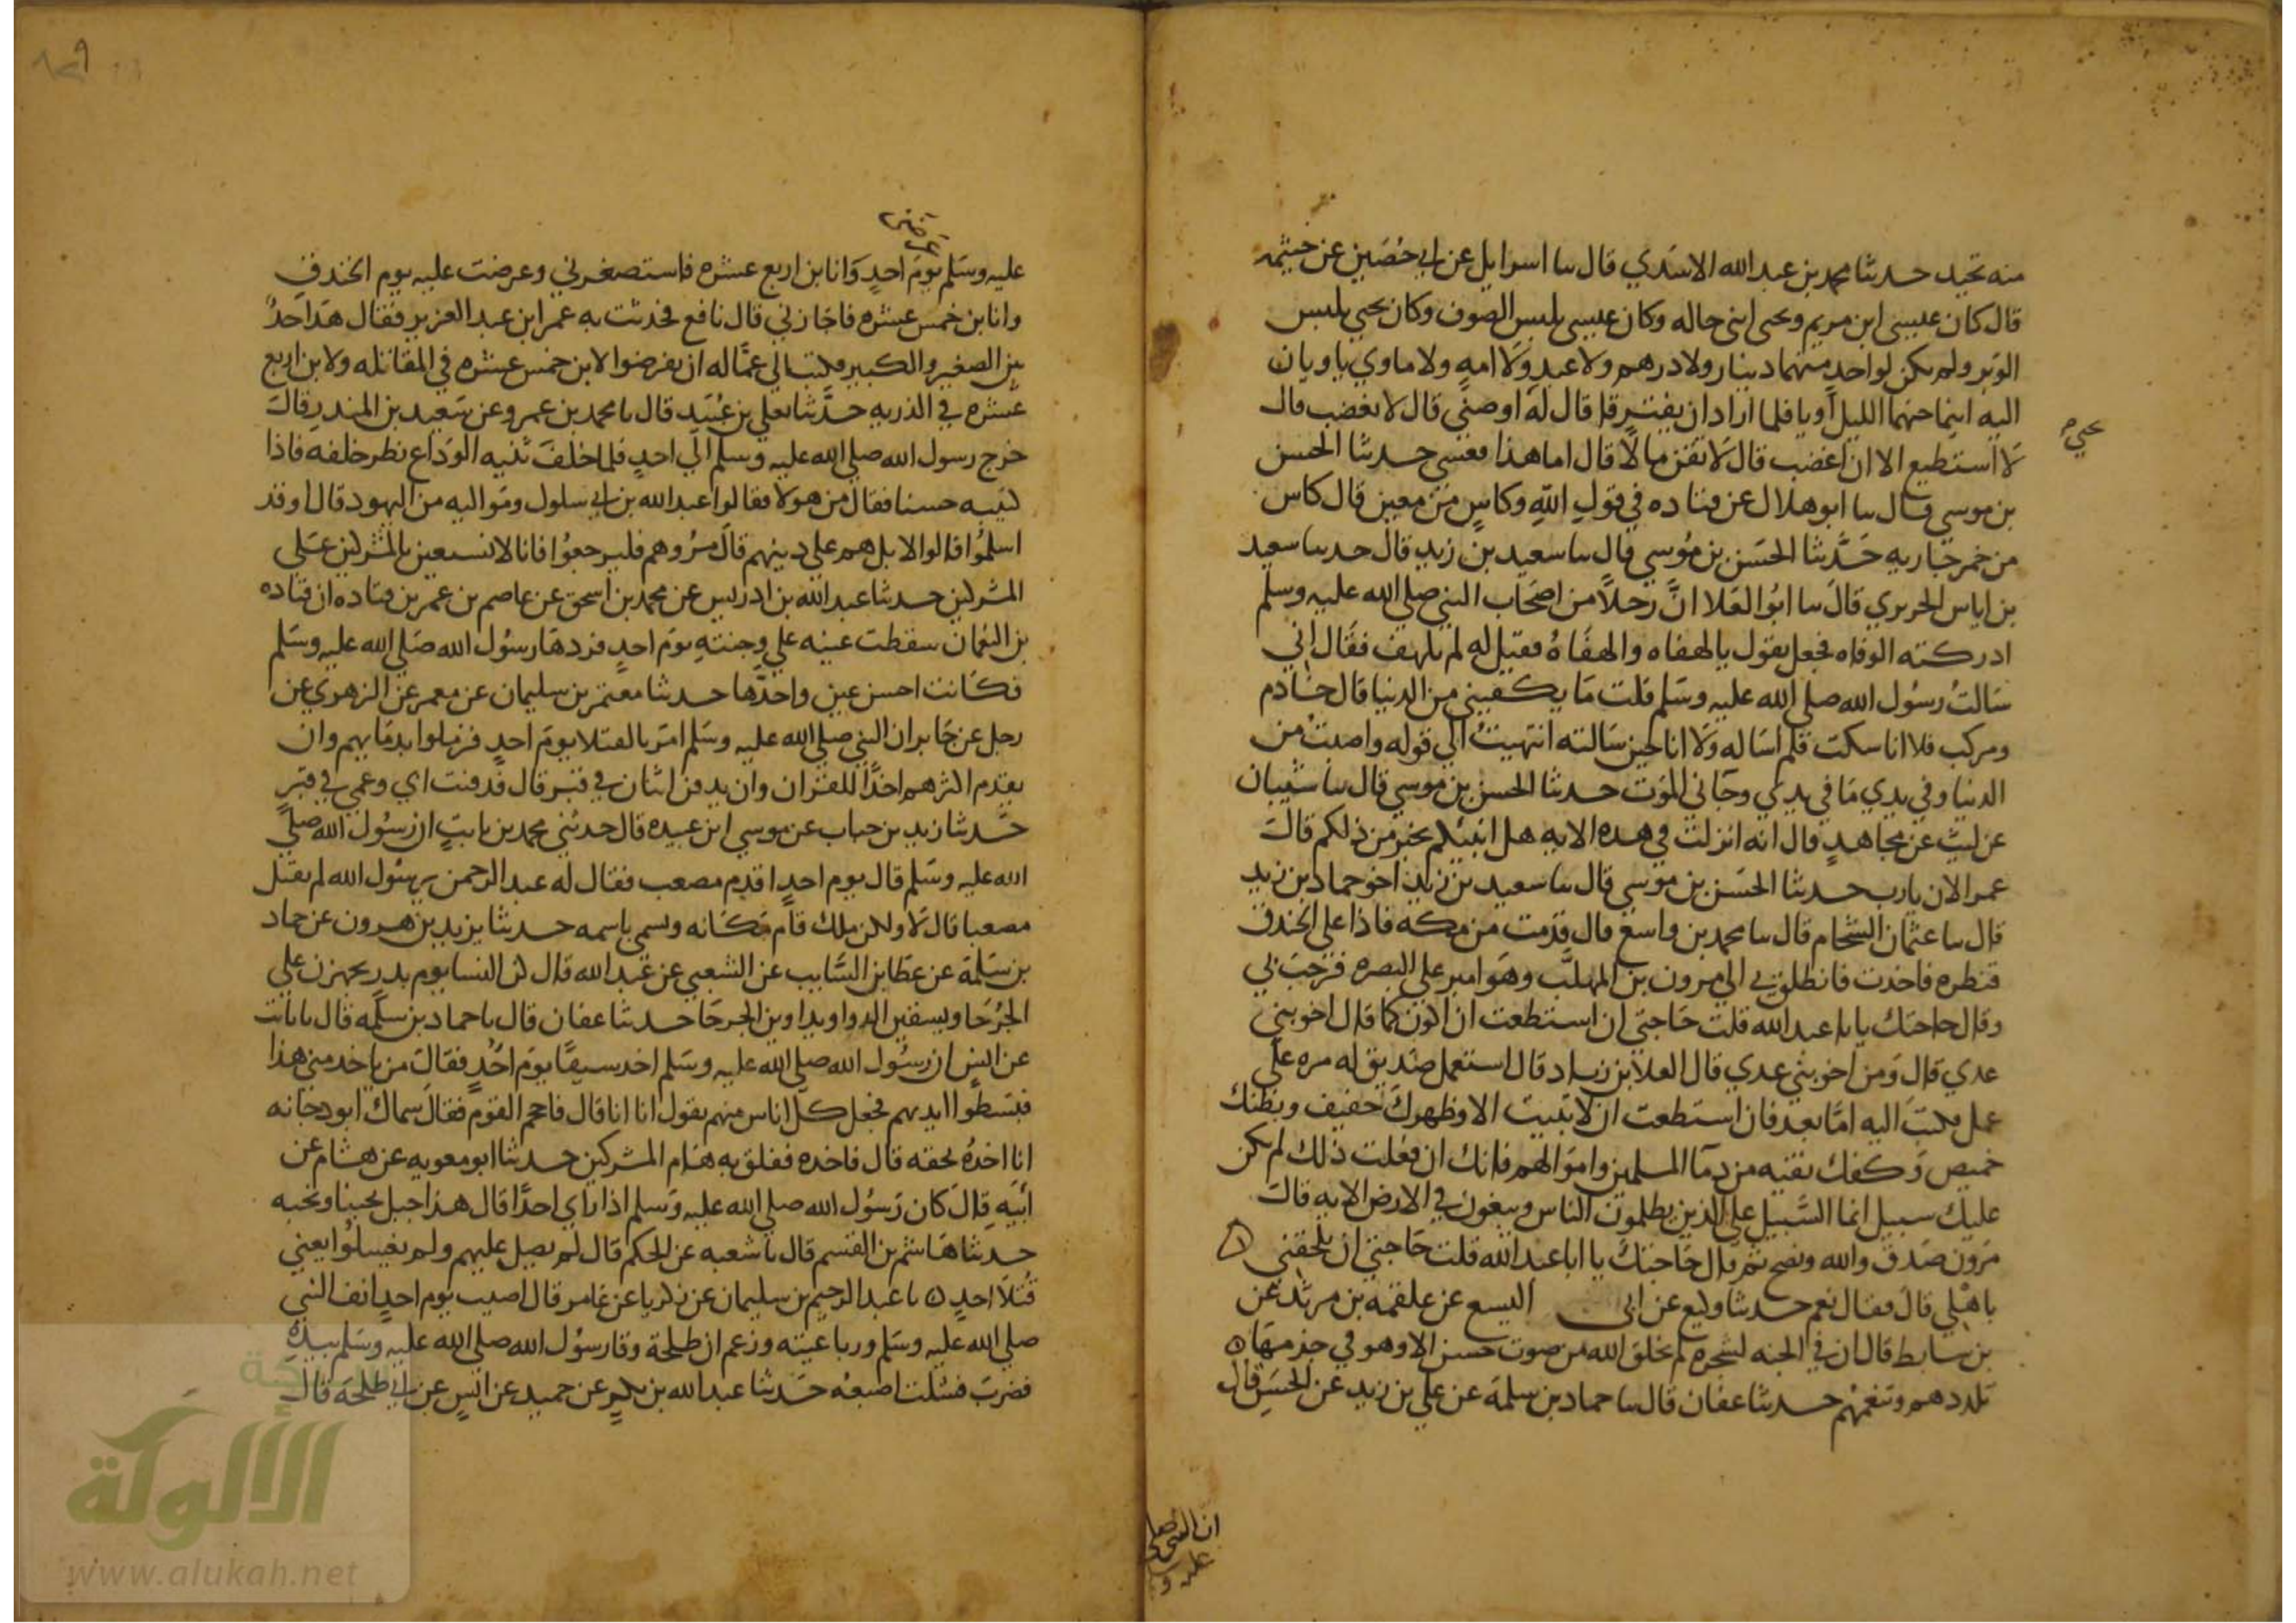 منه تحيد حدثنا محمد بن عبد الله الاسدي قال سا اسرايل عن ابي حُصَين عن خيثمه
قال كان عيسى ابن مريم ويحيى ابني خاله وكان عيسى يلبس الصوف وكان يحيى يلبس
الوبر ولم يكن لواحدٍ منهما دينار ولا درهم ولا عبد ولا امهٍ ولا ماوي ياويان
اليه اينما جنهما الليل أويا فلما ارادا ان يفترقا قال له اوصني قال لا تغضب قال
يحيى
لا استطيع الا ان اغضب قال لا تقتن مالًا قال اما هذا فعسى حدثنا الحسن
بن موسى قال سا ابو هلال عن قتاده في قول الله وكاسٍ من معين قال كاس
من خمر جاريه حدثنا الحسن بن موسى قال سا سعيد بن زيد قال حدثنا سعيد
بن اياس الجريري قال سا ابو العلا انَّ رجلاً من اصحاب النبي صلي الله عليه وسلم
ادركته الوفاه فجعل يقول يا لهفاه والهفاهُ فقيل له لم تلهف فقال اني
سالتُ رسول الله صلي الله عليه وسلم قلت ما يكفيني من الدنيا قال خادم
ومركب فلا انا سكت فلم اساله ولا انا حين سالته انتهيتُ الي قوله واصبت من
الدنيا وفي يدي ما في يدي وجاني الموت حدثنا الحسن بن موسي قال سا شيبان
عن ليث عن مجاهدٍ قال انه انزلت في هذه الايه هل انبئكم بخير من ذلكم قال
عمر الان يا رب حدثنا الحسن بن موسي قال سا سعيد بن زيد اخو حماد بن زيد
قال سا عثمان الشحام قال سا محمد بن واسع قال قدمت من مكه فاذا علي الخندق
قنطره فاخذت فانطلق بي الي مرون بن المهلَّب وهو امير علي البصره فرحب بي
وقال حاجتك يا با عبد الله قلت حاجتي ان استطعت ان اكون كما قال اخو بني
عدي قال ومن اخو بني عدي قال العلا بن زياد قال استعمل صديق له مره علي
عمل فكتب اليه امَّا بعد فان استطعت ان لا تبيت الا وظهرك خفيف وبطنك
خميص وكفك نقيه من دما المسلمين واموالهم فانك ان فعلت ذلك لم يكن
عليك سبيل انما السَّبيل علي الذين يظلمون الناس ويبغون في الارض الايه قال
مرون صدق والله ونصح ثم قال حاجتك يا ابا عبد الله قلت حاجتي ان تلحقني
باهلي قال فقال نعم حدثنا وكيع عن ابي اليسع عن علقمه بن مرثد عن
بن سابط قال ان في الجنه لشجره لم يخلق الله من صوت حسن الا وهو في جذمها
تلددهم وتنعمهم حدثنا عفان قال سا حماد بن سلمة عن علي بن زيد عن الحسن قال
ان النبي صلي
عليه و
عرضني
عليه وسلم يوم احدٍ وانا بن اربع عشره فاستصغرني وعرضت عليه يوم الخندق
وانا بن خمس عشره فاجازني قال نافع فحدثت به عمر ابن عبد العزيز فقال هذا حدٌ
بين الصغير والكبير فكتب الي عمَّاله ان يفرضوا لابن خمس عشره في المقاتله ولابن اربع
عشره في الذريه حدَّثنا يعلي بن عُبَيد قال نا محمد بن عمرو عن سَعيد بن المنذر قال
خرج رسول الله صلي الله عليه وسلم الي احدٍ فلما خلف ثنيه الوداع نظر خلفه فاذا
كتيبه حسنا فقال من هولا فقالوا عبد الله بن ابي سلول ومواليه من اليهود قال اوقد
اسلمُوا قالوا لا بل هم علي دينهم قال مُروهم فليرجعوُا فانا لا نستعين بالمشركين علي
المشركين حدثنا عبد الله بن ادريس عن محمد بن اسحق عن عاصم بن عمر بن قتاده ان قتاده
بن النعمان سقطت عينه علي وجنتهِ يوم احدٍ فردها رسول الله صلي الله عليه وسلم
فكانت احسن عينٍ واحدَّها حدثنا معتمر بن سليمان عن معمر عن الزهري عن
رجل عن جابر ان النبي صلي الله عليه وسلم امر بالقتلا يوم احدٍ فزملوا بدمايهم وان
يقدم اكثرهم اخذًا للقران وان يدفن اثنان في قبر قال فدفنت ابي وعمي في قبرٍ
حدثنا زيد بن حباب عن موسي ابن عبيده قال حدثني محمد بن ثابتٍ ان رسول الله صلي
الله عليه وسلم قال يوم احدٍ اقدم مصعب فقال له عبد الرحمن يرسول الله لم يقتل
مصعبا قال لا ولكن ملك قام مكانه وسمي باسمه حدثنا يزيد بن هرون عن حماد
بن سلمة عن عطا بن السَّايب عن الشعبي عن عبد الله قال كن النسا يوم بدر يجهزن علي
الجُرحا ويسقين الما ويداوين الجرحا حدثنا عفان قال نا حماد بن سلمه قال نا ثابت
عن انسٍ ان رسُول الله صلي الله عليه وسلم اخد سيفًا يوم احدٍ فقال من ياخد مني هذا
فبسَطوا ايديهم فجعل كل اناس منهم يقول انا انا قال فاحجم القوم فقال سماك ابو دجانه
انا اخدُه بحقه قال فاخده ففلق به هام المشركين حدثنا ابو معويه عن هشام عن
ابيهِ قال كان رسُول الله صلي الله عليه وسلم اذا راي احدًا قال هذا جبل يحبنا ونحبه
حدثنا هاشم بن القسم قال نا شعبه عن الحكم قال لم يصل عليهم ولم يغسلوُا يعني
قُتلا احدٍ نا عبد الرحيم بن سليمان عن زكريا عن عامر قال اصيب يوم احدٍ انف النبي
صلي الله عليه وسلم ورباعيته وزعم ان طلحة وقا رسُول الله صلي الله عليه وسلم بيده
فضربَ فشلت اصبعُه حدثنا عبد الله بن بكرٍ عن حميد عن انسٍ عن ابي طلحة قال
الألوكة
www.alukah.net